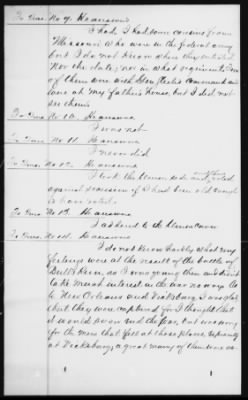 To Ques. No 9. He answers
I had. I had some cousins from
Missouri who were in the federal army
but I do not know when they enlisted
Nor the date; nor in what regiments. Two
of them were with command and
come at my father's house, but I did not
see them.
To Ques. No 10. He answers
I was not
To Ques. No 11. He answers
I never did
To Ques. No 12. He answers
I took the Union side and voted
against secession if I had been old enough
to have voted.
To Ques. No 13. He answers
I adhered to the Union cause
To Ques. No 14. He answers
I do not know exactly what my
feelings were at the result of the battle of
Bull Run as I was young then and didn't
take much interest in the war no way. As
to New Orleans and Vicksburg I was glad
that they were captured for I thought that
it would soon end the war, but was sorry
for the men that fell at those places especially
at Vicksburg, a great many of them were as